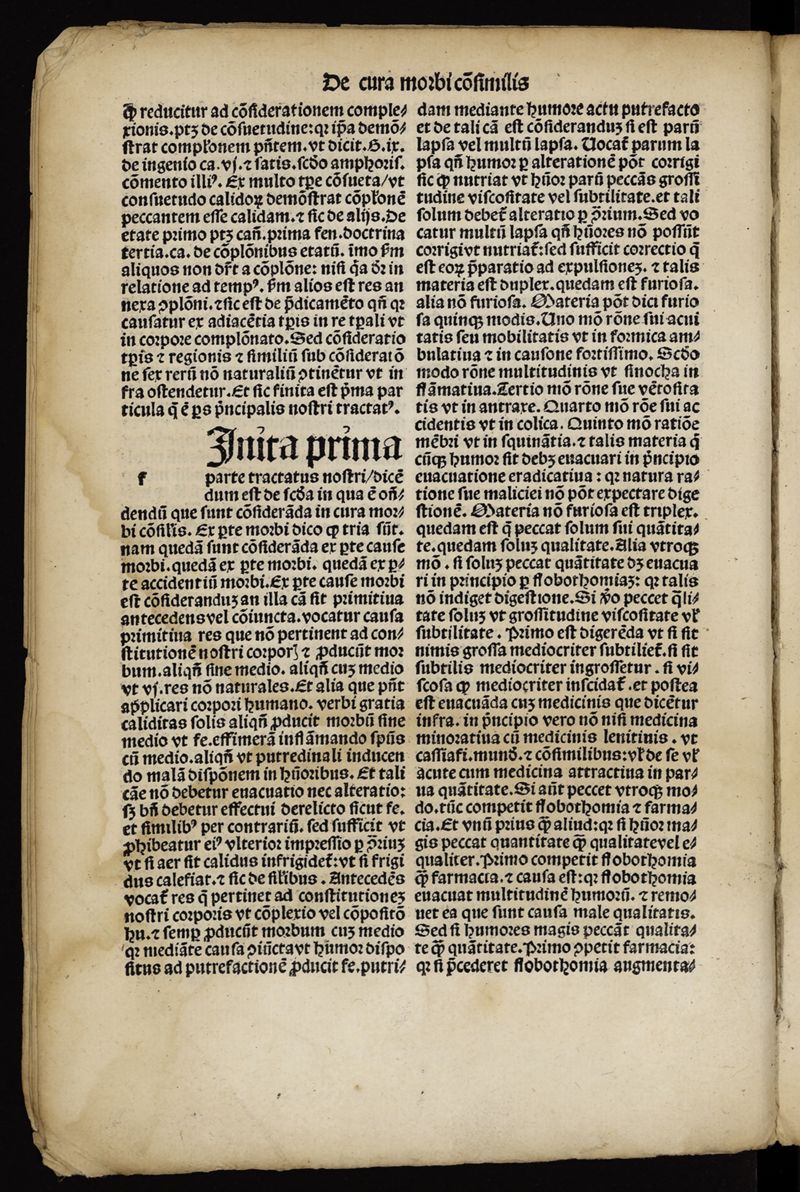 De cura morbi cõſimilis
ꝙ̃ reducitur ad cõſiderationem comple⸗
xionis.ptꝫ de cõſuetudine:qꝛ ip̃a demõ⸗
ſtrat compl'onem pñtem.vt dicit.G.ix.
de ingenio ca.vj.⁊ ſatis.ſcd̃o amphoriſ.
cõmento illiꝰ. Ex multo tꝑe cõſueta/vt
conſuetudo calidoꝝ demõſtrat cõpl'onẽ
peccantem eſſe calidam.⁊ ſic de alijs.De
etate primo ptꝫ cañ.prima fen.doctrina
tertia.ca.de cõplõnibus etatũ. ĩmo ẜm
aliquos non dr̃t a cõplõne: niſi q̃a dr̃ in
relatione ad tempꝰ. ẜm alios eſt res an
nexa ꝯplõni.⁊ſic eſt de p̃dicamẽto qñ qꝛ
cauſatur ex adiacẽtia tꝑis in re tꝑali vt
in corpore complõnato.Sed cõſideratio
tꝑis ⁊ regionis ⁊ ſimiliũ ſub cõſideratõ
ne ſex rerũ nõ naturaliũ ꝯtinẽtur vt in
fra oſtendetur.Et ſic finita eſt p̃ma par
ticula q̃ ẽ ꝑs p̃ncipalis noſtri tractatꝰ.
Inita prima
f parte tractatus noſtri/dicẽ
dum eſt de ſcd̃a in qua ẽ oñ⸗
dendũ que ſunt cõſiderãda in cura mor⸗
bi cõſil'is. Ex ꝑte morbi dico ꝙ tria ſũt.
nam quedã ſunt cõſiderãda ex ꝑte cauſe
morbi.quedã ex ꝑte morbi. quedã ex ꝑ⸗
te accidentiũ morbi.Ex ꝑte cauſe morbi
eſt cõſideranduꝫ an illa cã ſit primitiua
antecedensvel cõiuncta.vocatur cauſa
primitiua res que nõ pertinent ad con⸗
ſtitutionẽ noſtri corporꝭ ⁊ ꝓducũt mor
bum.aliqñ ſine medio. aliqñ cuꝫ medio
vt vj.res nõ naturales.Et alia que pñt
applicari corpori humano. verbi gratia
caliditas ſolis aliqñ ꝓducit morbũ ſine
medio vt fe.effimerã inflãmando ſpũs
cũ medio.aliqñ vt putredinali inducen
do malã diſpõnem in hũoribus. Et tali
cãe nõ debetur euacuatio nec alteratio:
ſꝫ bñ debetur effectui derelicto ſicut fe.
et ſimilibꝰ per contrariũ. ſed ſufficit vt
ꝓhibeatur eiꝰ vlterior impreſſio ꝑ ꝯ̃riuꝫ
vt ſi aer ſit calidus infrigidet̃:vt ſi frigi
dus calefiat.⁊ ſic de ſil'ibus . Antecedẽs
vocat̃ res q̃ pertinet ad conſtitutioneꝫ
noſtri corporis vt cõplexio vel cõpoſitõ
hu.⁊ ſemꝑ ꝓducũt morbum cuꝫ medio
qꝛ mediãte cauſa ꝯiũctavt hũmor diſpo
ſitus ad putrefactionẽ ꝓducit fe.putri⸗
dam mediante humore actu putrefacto
et de tali cã eſt cõſideranduꝫ ſi eſt parũ
lapſa vel multũ lapſa. Uocat̃ parum la
pſa qñ humor ꝑ alterationẽ põt corrigi
ſic ꝙ nutriat vt hũor parũ peccãs groſſi
tudine viſcoſitate vel ſubtilitate.et tali
ſolum debet̃ alteratio ꝑ ꝯ̃rium.Sed vo
catur multũ lapſa qñ hũores nõ poſſũt
corrigivt nutriat̃:ſed ſufficit correctio q̃
eſt eoꝝ p̃paratio ad expulſioneꝫ. ⁊ talis
materia eſt duplex.quedam eſt furioſa.
alia nõ furioſa. Materia põt dici furio
ſa quinqꝫ modis.Uno mõ rõne ſui acui
tatis ſeu mobilitatis vt in formica am⸗
bulatiua ⁊ in cauſone fortiſſimo. Scd̃o
modo rõne multitudinis vt ſinocha in
flãmatiua.Tertio mõ rõne ſue vẽtoſita
tis vt in antrax̃e. Quarto mõ rõe ſui ac
cidentis vt in colica. Quinto mõ ratiõe
mẽbri vt in ſquinãtia.⁊ talis materia q̃
cũqꝫ humor ſit debꝫ euacuari in p̃ncipio
euacuatione eradicatiua : qꝛ natura ra⸗
tione ſue maliciei nõ põt expectare dige
ſtionẽ. Materia nõ furioſa eſt triplex.
quedam eſt q̃ peccat ſolum ſui quãtita⸗
te.quedam ſoluꝫ qualitate.Alia vtroqꝫ
mõ . ſi ſoluꝫ peccat quãtitate dꝫ euacua
ri in principio ꝑ flobothomiaꝫ: qꝛ talis
nõ indiget digeſtione.Si v̉o peccet q̃li⸗
tate ſoluꝫ vt groſſitudine viſcoſitate vl'
ſubtilitate . Primo eſt digerẽda vt ſi ſit
nimis groſſa mediocriter ſubtiliet̃.ſi ſit
ſubtilis mediocriter ingroſſetur . ſi vi⸗
ſcoſa ꝙ mediocriter inſcidat̃ .et poſtea
eſt euacuãda cuꝫ medicinis que dicẽtur
infra. in p̃ncipio vero nõ niſi medicina
minoratiua cũ medicinis lenitiuis . vt
caſſiafi.mund̃.⁊ cõſimilibus:vl'de ſe vl'
acute cum medicina attractiua in par⸗
ua quãtitate.Si aũt peccet vtroqꝫ mo⸗
do.tũc competit flobothomia ⁊ farma⸗
cia.Et vnũ prius ꝙ̃ aliud:qꝛ ſi hũor ma⸗
gis peccat quantitate ꝙ̃ qualitatevel e⸗
qualiter.Primo competit flobothomia
ꝙ̃ farmacia.⁊ cauſa eſt:qꝛ flobothomia
euacuat multitudinẽ humorũ. ⁊ remo⸗
uet ea que ſunt cauſa male qualitatis.
Sed ſi humores magis peccãt qualita⸗
te ꝙ̃ quãtitate.Primo ꝯpetit farmacia:
qꝛ ſi p̃cederet flobothomia augmenta⸗